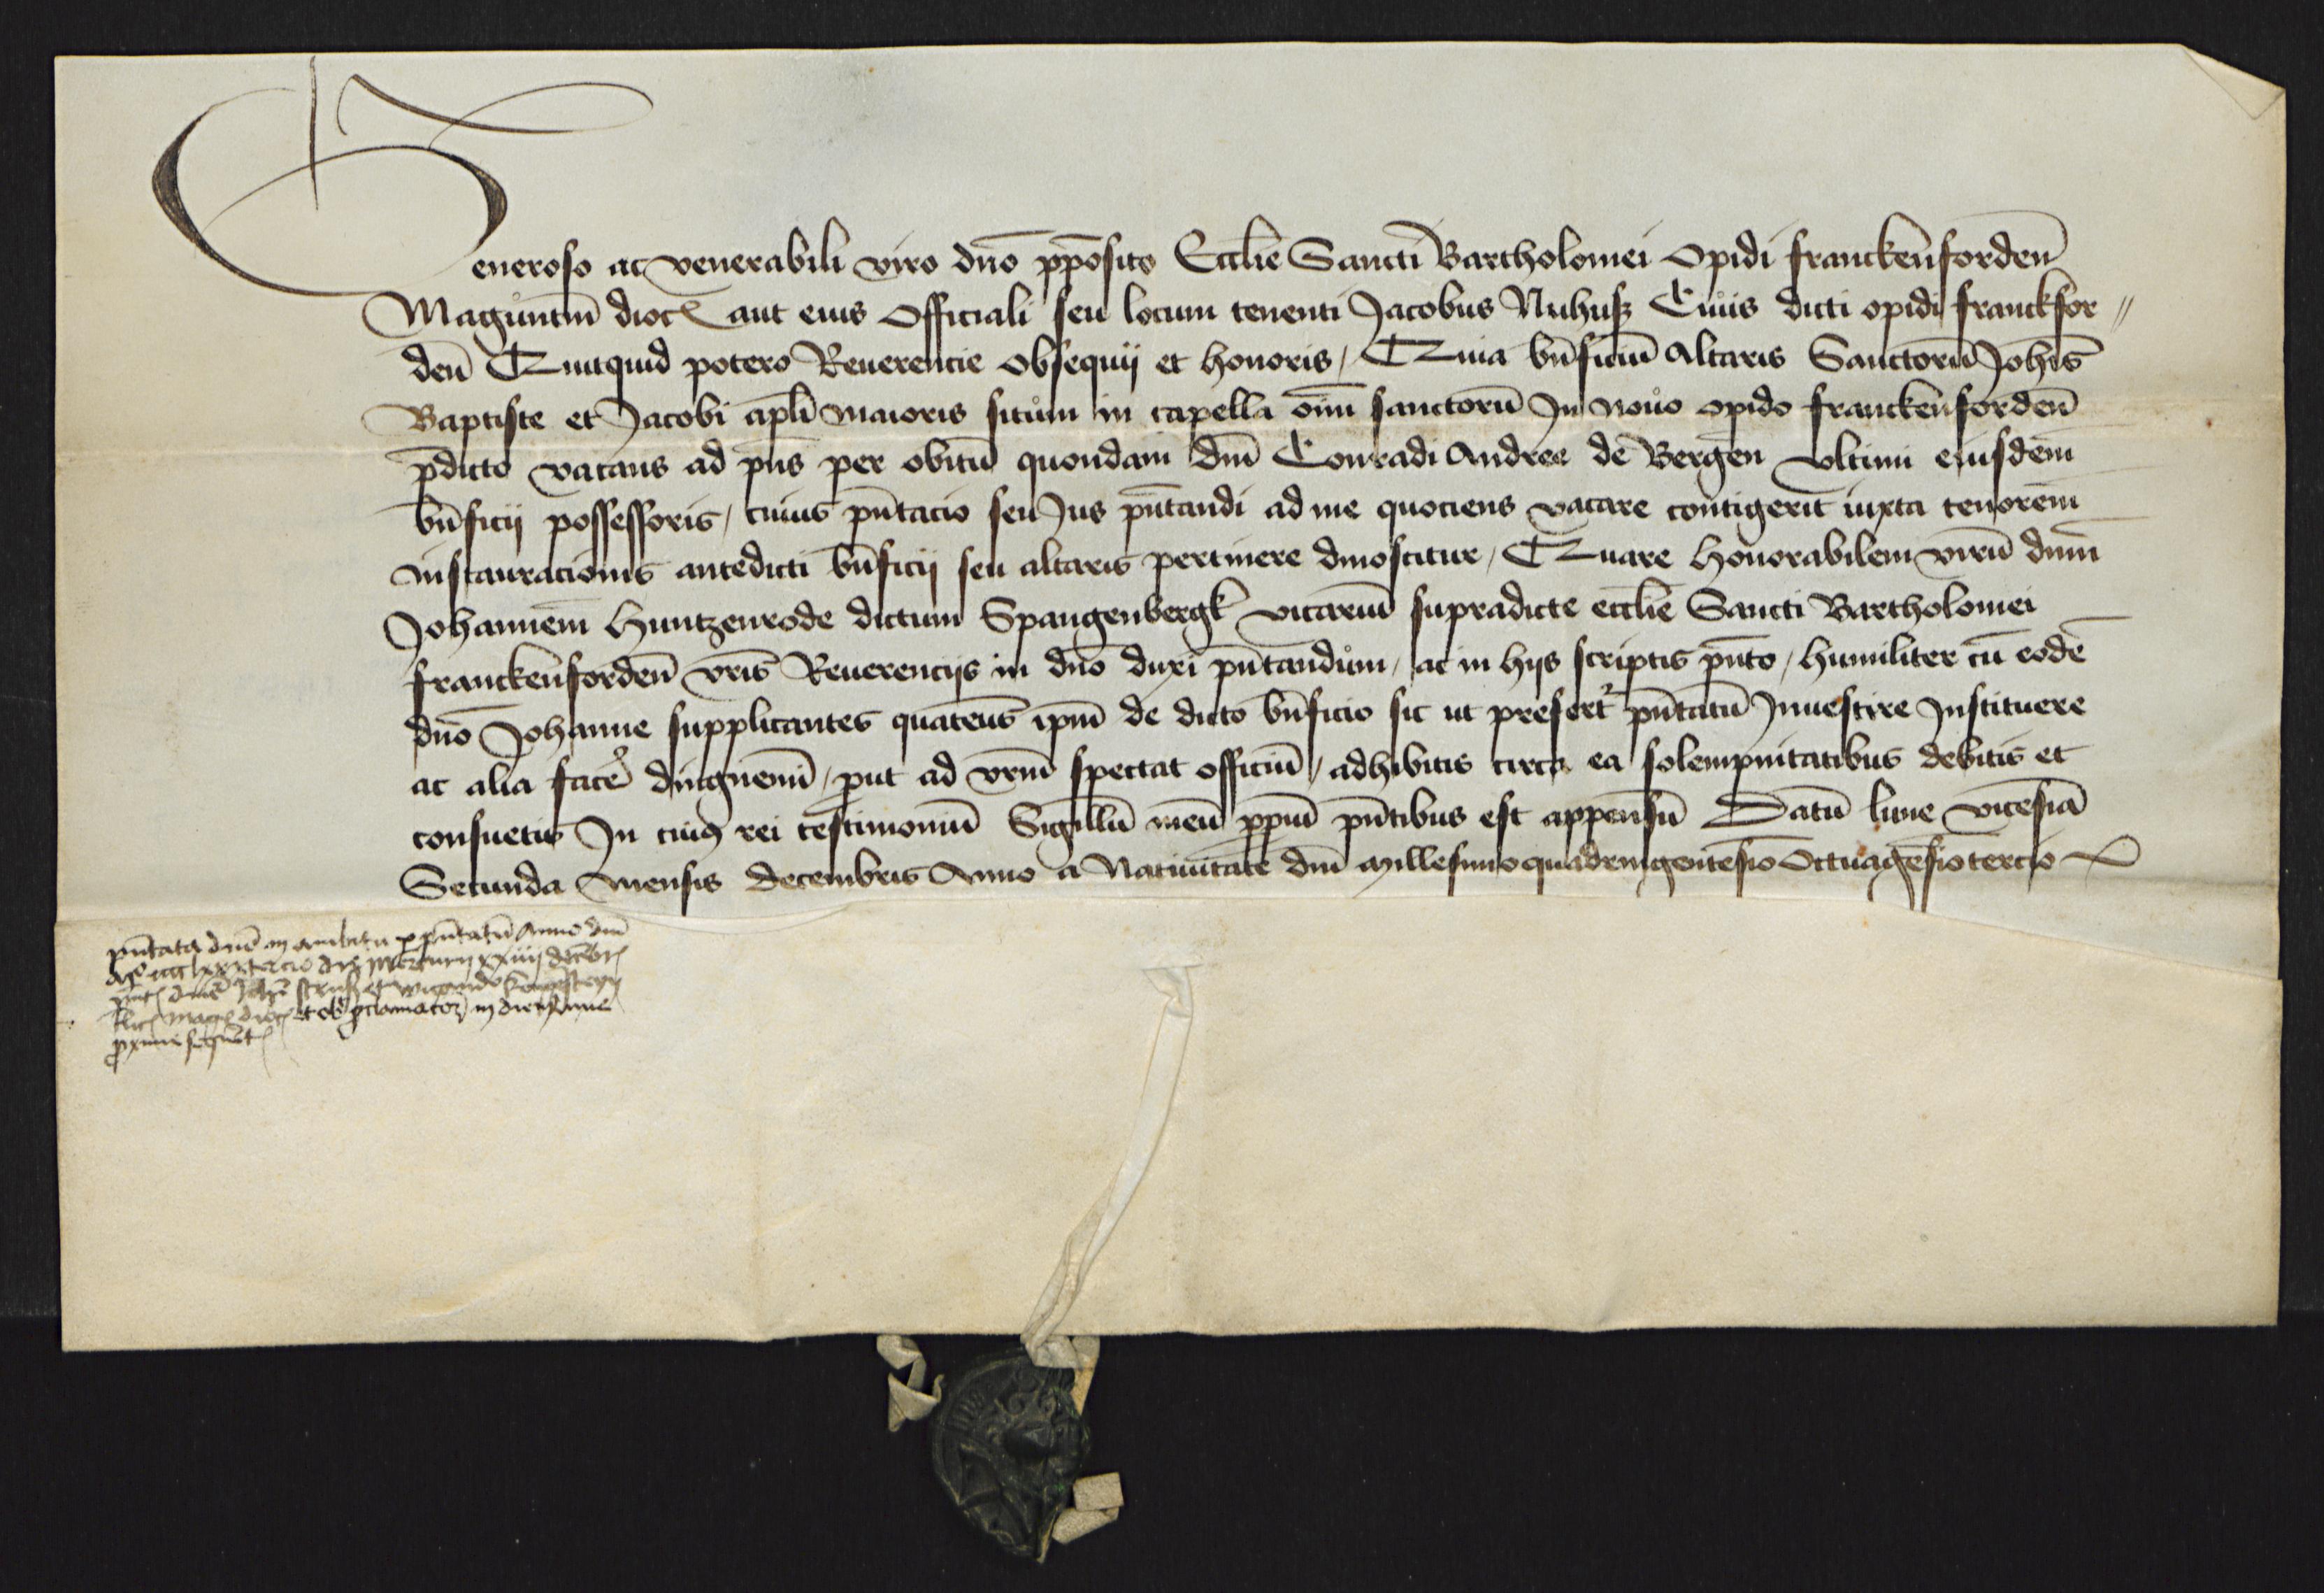 Generoso ac venerabili viro dno ppōsito Ecclīe Sancti Bartholomei Opidi franckenfordeñ
Maguntiñ dioc aut eius Officiali seu locum tenenti Jacobus Nuhusz Ciuis dicti opidi franckfor〃
deñ Quitquid potero Reuerencie obsequij et honoris / Quia bñficiū Altaris Sanctorū Joh̄is
Baptiste et Jacobi apl̄i maioris situm in capella om̄ sanctorū In nouo opido franckenfordeñ
p̄dicto vacans ad pn̄s per obitū quondam dn̄i Conradi Andree de Bergen vltimi eiusdem
bn̄ficij possessoris / cuius pn̄tacio seu Jus pn̄tandi ad me quociens vacare contigerit iuxta tenorem
instauracionis antedicti bn̄ficij seu altaris pertinere dinoscitur / Quare honorabilem virū dn̄m
Johannem Huntzenrode dictum Spangenbergk vicariū supradicte eccl̄ie Sancti Bartholomei
franckenfordeñ vr̄is Reuerencijs in dn̄o duxi pn̄tandum / ac in hijs scriptis pn̄to / humiliter cū eodē
dn̄o Johanne supplicantes quateus ip̄m de dicto bn̄ficio sic ut prefert᷑ pn̄tatū Inuestire Instituere
ac alia facere dingnemī / put ad vr̄m spectat officiū / adhibitis circa ea solempnitatibus debitis et
consuetis In cuiꝰ rei testimoniū Sigillū meū ppiū pn̄tibus est appensū Datū lune vicesīa
Secunda mensis decembris Anno a Natiuitate dn̄i millesimo quadringentesīo Octuagesīo tercio
pn̄tata dn̄i in ambitu p pn̄tatū Anno dn̄i
lxxxtercio die Mercurij xxiiij decēbr
et wigando
Magt dioc et proclamator in
pxime sequēt